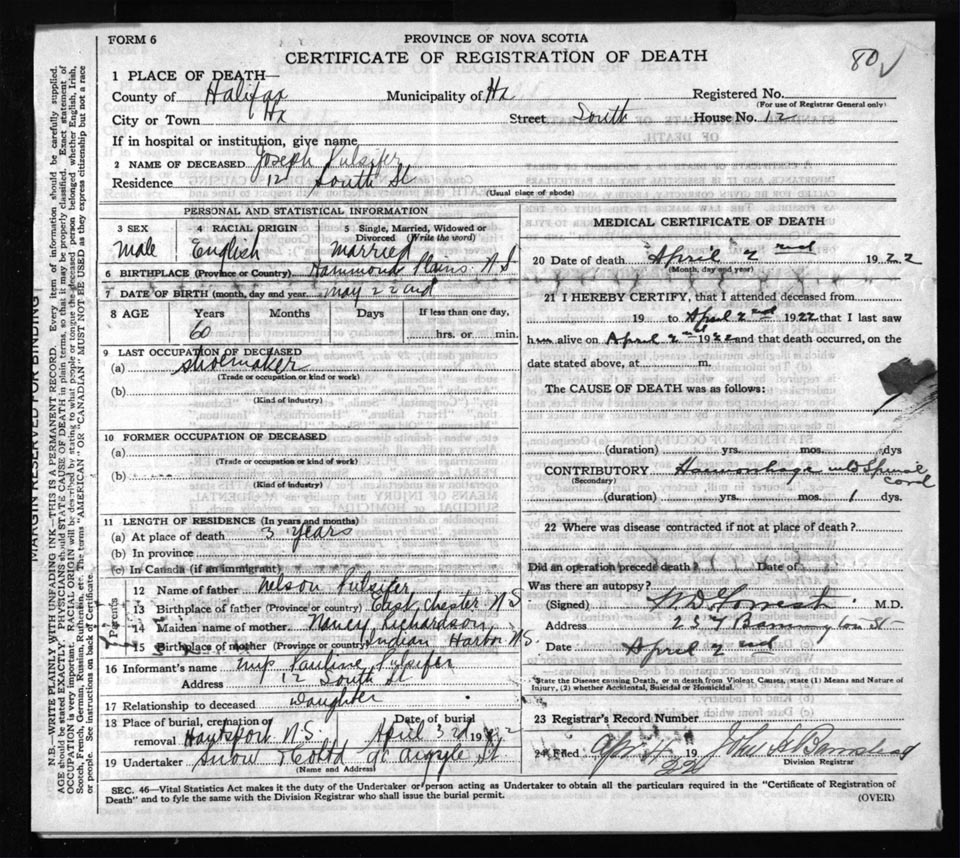 FORM 6
PROVINCE OF NOVA SCOTIA
CERTIFICATE OF REGISTRATION OF DEATH
80
1 PLACE OF DEATH—
County of Halifax Municipality of Hx Registered No.
(For use of Registrar General only)
City or Town Hx Street South House No. 12
If in hospital or institution, give name
2 NAME OF DECEASED Joseph Pulsifer
Residence 12 South St
(Usual place of abode)
PERSONAL AND STATISTICAL INFORMATION
3 SEX 4 RACIAL ORIGIN 5 Single, Married, Widowed or Divorced (Write the word)
Male English Married
6 BIRTHPLACE (Province or Country). Hammond Plains N S
7 DATE OF BIRTH (month, day and year) May 22nd
8 AGE Years Months Days If less than one day,
60 hrs. or min.
9 LAST OCCUPATION OF DECEASED
(a) Shoemaker
(Trade or occupation or kind or work)
(b)
(Kind of industry)
10 FORMER OCCUPATION OF DECEASED
(a)
(Trade or occupation or kind of work)
(b)
(Kind of industry)
11 LENGTH OF RESIDENCE (In years and months)
(a) At place of death 3 years
(b) In province
(c) In Canada (if an immigrant)
Parents
12 Name of father Nelson Pulsifer
13 Birthplace of father (Province or country) East Chester N S
14 Maiden name of mother Nancy Richardson
15 Birthplace of mother (Province or country) Indian Harbor N S.
16 Informant's name Miss Pauline Pulsifer
Address 12 South St
17 Relationship to deceased Daughter
18 Place of burial, cremation or removal Hantsport N.S. Date of burial April 3rd 1922
19 Undertaker Snow & Co Ltd 90 Argyle St
(Name and Address)
MEDICAL CERTIFICATE OF DEATH
20 Date of death April 2nd 1922
(Month, day and year)
21 I HEREBY CERTIFY, that I attended deceased from
19 to April 2nd 1922 that I last saw
him alive on April 2nd 1922 and that death occurred, on the
date stated above, at m.
The CAUSE OF DEATH was as follows:
(duration) yrs. mos. dys
CONTRIBUTORY Haemorrhage into Spinal Cord
(Secondary)
(duration) yrs. mos. 1 dys.
22 Where was disease contracted if not at place of death?
Did an operation precede death? Date of
Was there an autopsy?
(Signed) W D Forrest M.D.
Address
Date April 2nd
State the Disease causing Death, or in death from Violent Causes, state (1) Means and Nature of
Injury, (2) whether Accidental, Suicidal or Homicidal.
23 Registrar's Record Number
24 Filed Apr 4 19 22
Division Registrar
SEC. 46—Vital Statistics Act makes it the duty of the Undertaker or person acting as Undertaker to obtain all the particulars required in the "Certificate of Registration of
Death" and to fyle the same with the Division Registrar who shall issue the burial permit.
(OVER)
MARGIN RESERVED FOR BINDING
N.B.—WRITE PLAINLY WITH UNFADING INK—THIS IS A PERMANENT RECORD. Every item of information should be carefully supplied.
AGE should be stated EXACTLY. PHYSICIANS should STATE CAUSE OF DEATH in plain terms, so that it may be properly classified. Exact statement of
OCCUPATION is very important. RACIAL ORIGIN will be described by stating to what people or tongue the deceased person belonged, whether English, Irish,
Scotch, French, German, Russian, Ruthenian, etc. The terms "AMERICAN" OR "CANADIAN" MUST NOT BE USED as they express citizenship but not a race
or people. See instructions on back of Certificate.